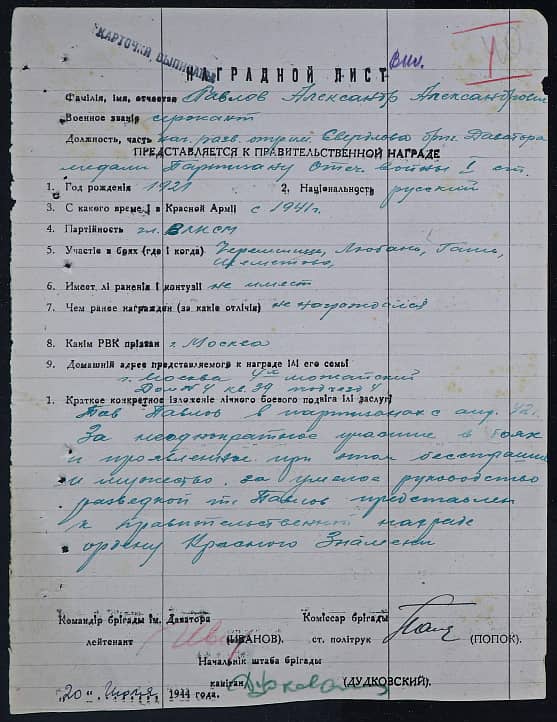 КАРТОЧКА ВЫПИСАНА
НАГРАДНОЙ ЛИСТ
I
Фаміліа, імя, отчество Павлов Александр Александрович
Военное званіе сержант
Должность, часть нач. разв. отряд Свердлова бриг. Даватора
ПРЕДСТАВЛЯЕТСЯ К ПРАВИТЕЛЬСТВЕННОЙ НАГРАДЕ
медали Партизану Отеч. войны I ст.
1. Год рожденія 1921 2. Національность русский
3. С какого времені в Красной Арміі с 1941 г.
4. Партійность чл. ВЛКСМ
5. Участіе в боях (где і когда) Любань,
6. Имеет лі раненія і контузіі не имеет
7. Чем ранее награжден (за какіе отлічія) не награждался
8. Какім РВК прізван г. Москва
9. Домашній адрес представляемого к награде ілі его семьі
г. Москва 4ый можайский
Дом № 4 кв. 39 подъезд 4
1. Краткое конкретное ізложеніе лічного боевого подвіга ілі заслуг
Тов Павлов в партизанах с 42 г.
За неоднократное участие в боях
и проявленные при этом бесстрашие
и мужество, за умелое руководство
разведкой т. Павлов представлен
к правительственной награде
ордену Красного Знамени
Командір брігады ім. Даватора
лейтенант (ІВАНОВ).
Комиссар брігады
ст. політрук (ПОПОК).
Начальнік штаба брігады
капітан (ДУДКОВСКИЙ).
"20" Июня 1944 года.